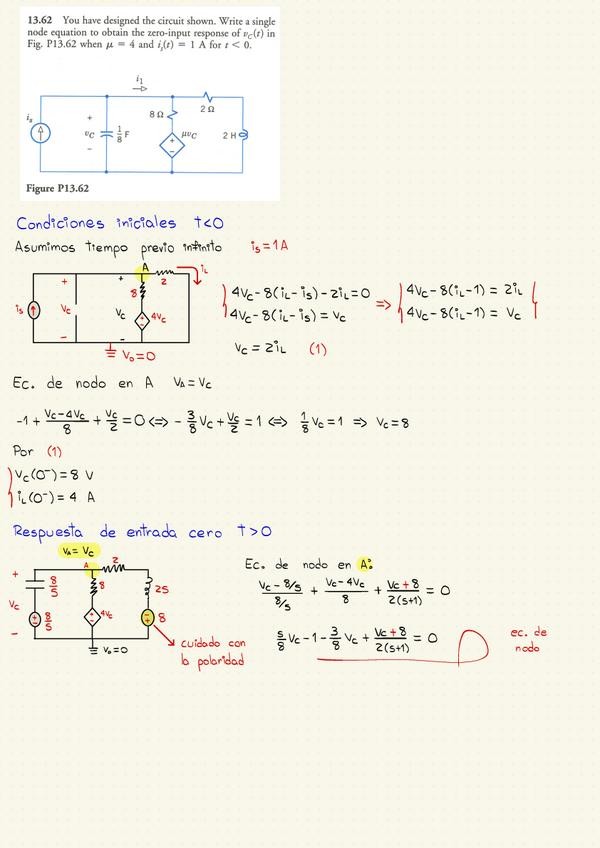 13.62 You have designed the circuit shown. Write a single
node equation to obtain the zero-input response of vC(t) in
Fig. P13.62 when μ = 4 and is(t) = 1 A for t < 0.
i1
2 Ω
8 Ω
is
+
vC
−
1/8 F
+
−
μvC
2 H
Figure P13.62
Condiciones iniciales t<0
Asumimos tiempo previo infinito is=1A
A
iL
2
8
+
+
is
Vc
Vc
4Vc
−
−
V₀=0
4Vc-8(iL-is)-2iL=0
4Vc-8(iL-is)=Vc
=>
4Vc-8(iL-1)=2iL
4Vc-8(iL-1)=Vc
Vc=2iL (1)
Ec. de nodo en A VA=Vc
-1+(Vc-4Vc)/8+Vc/2=0<=>-3/8Vc+Vc/2=1<=>1/8Vc=1=>Vc=8
Por (1)
Vc(0⁻)=8 V
iL(0⁻)=4 A
Respuesta de entrada cero t>0
VA=Vc
A
2
+
8/s
8
2s
Vc
8/s
4Vc
8
−
V₀=0
cuidado con
la polaridad
Ec. de nodo en A:
(Vc-8/s)/(8/s)+(Vc-4Vc)/8+(Vc+8)/(2(s+1))=0
s/8Vc-1-3/8Vc+(Vc+8)/(2(s+1))=0
ec. de
nodo